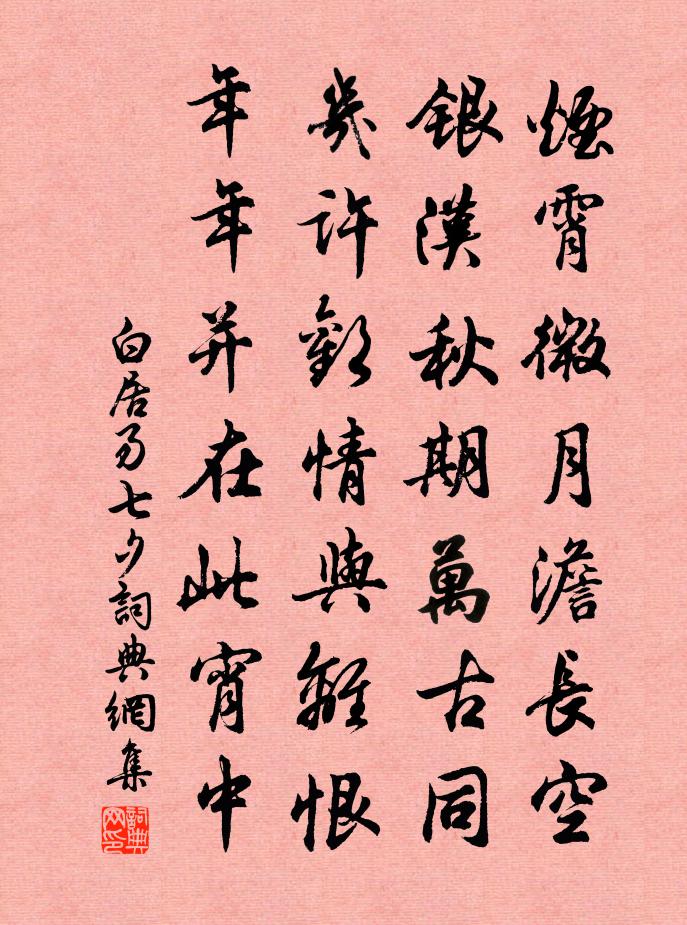 煙霄微月澹長空
銀漢秋期萬古同
幾許歡情與離恨
年年并在此宵中
白居易七夕詞典網集
詞典网印